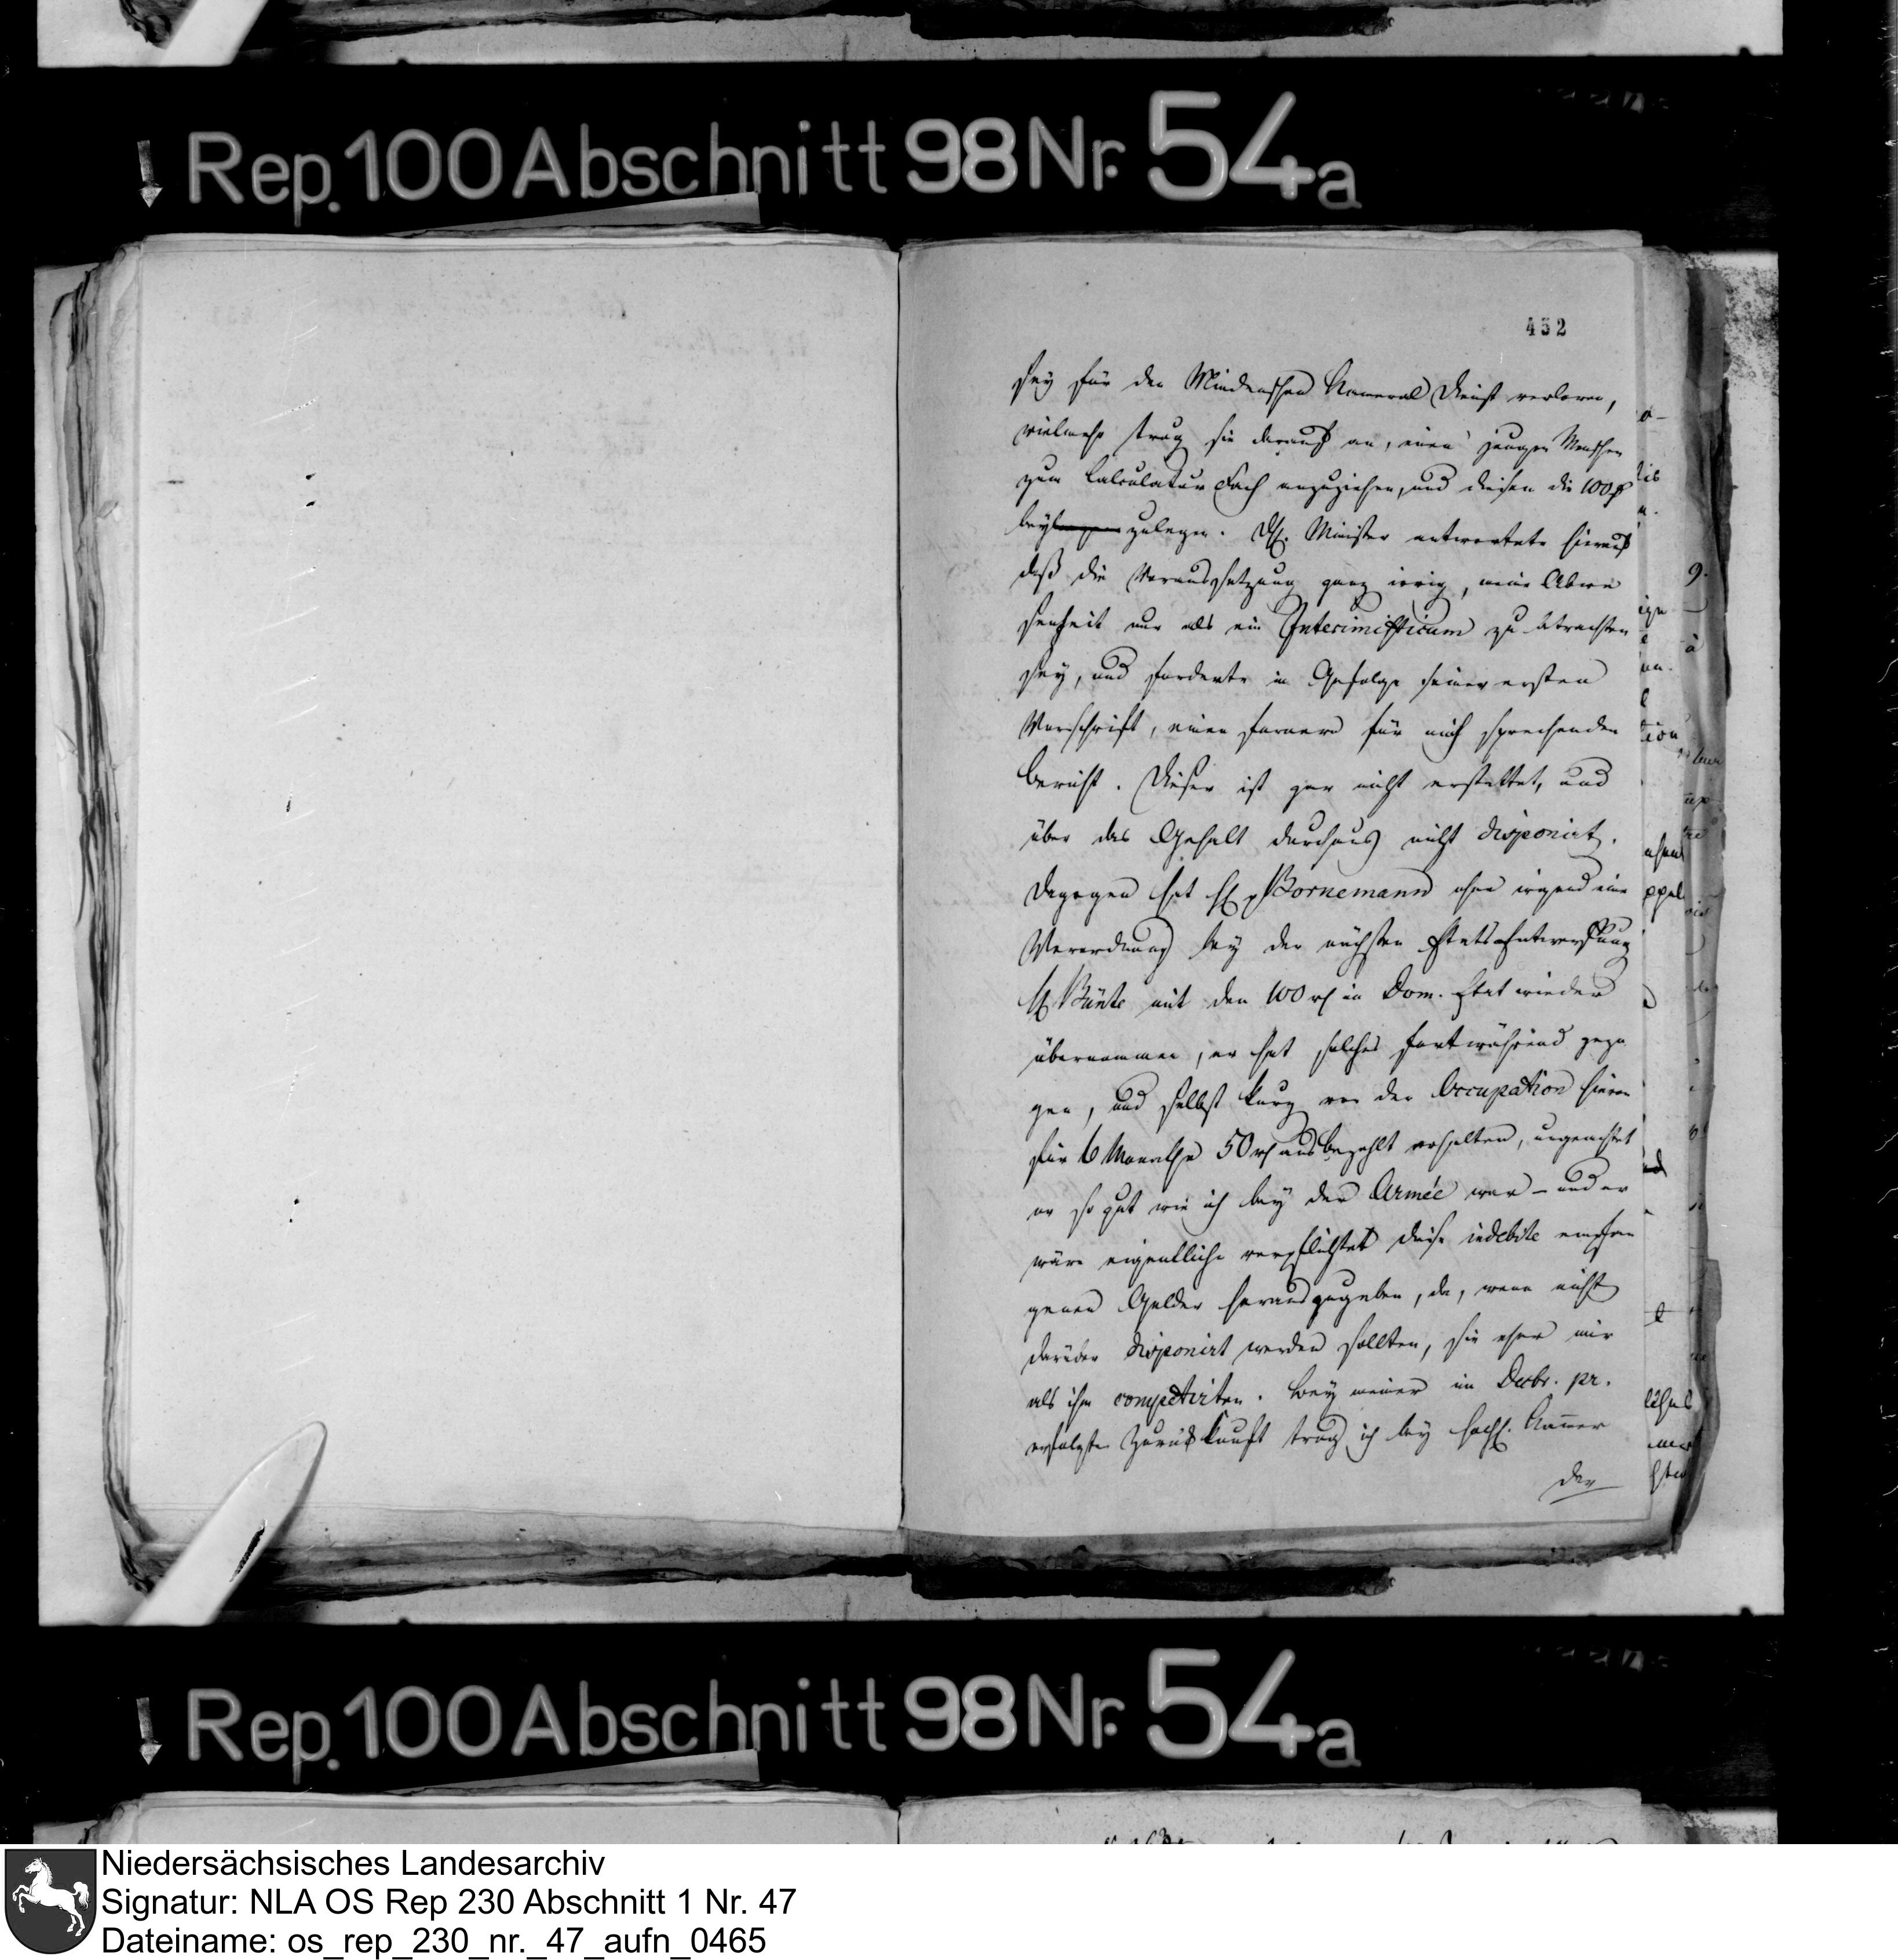 Rep. 100 Abschnitt 98 Nr. 54a
452
sey für den Mindenschen Kameral Dienst verloren,
vielmehr trug sie darauf an, einen jungen Menschen
zum Calculatur Fach anzuziehen, und diesem die 100
bey zulegen. Minister antwortete hierauf
daß die Voraussetzung ganz irrig, meine Abwe
senheit nur als ein Interimisticum zu betrachten
sey, und forderte in Gefolge seiner ersten
Vorschrift, einen fernern für mich sprechenden
Bericht. Dieser ist gar nicht erstattet, und
über das Gehalt durchaus nicht disponirt.
Dagegen hat H. p Bornemann ohne irgend eine
Verordnung bey der nächsten Etats Entwerfung
H. Bünte mit den 100 rl in Dom. Etat wieder
übernommen, er hat solches fortwährend gezo
gen, und selbst kurz vor der Occupation hievon
für 6 Monathe 50 rl ausbezahlt erhalten, ungeachtet
er so gut wie ich bey der Armée war – und er
wäre eigentliche verpflichtet diese indebite empfan
genen Gelder herauszugeben, da, wenn nicht
darüber disponirt werden sollten, sie eher mir
als ihm competirten. Bey meiner im Decbr. pr.
erfolgten Zurückkunft trug ich bey hochl. Kam̄er
der
Rep. 100 Abschnitt 98 Nr. 54a
Niedersächsisches Landesarchiv
Signatur: NLA OS Rep 230 Abschnitt 1 Nr. 47
Dateiname: os_rep_230_nr._47_aufn_0465